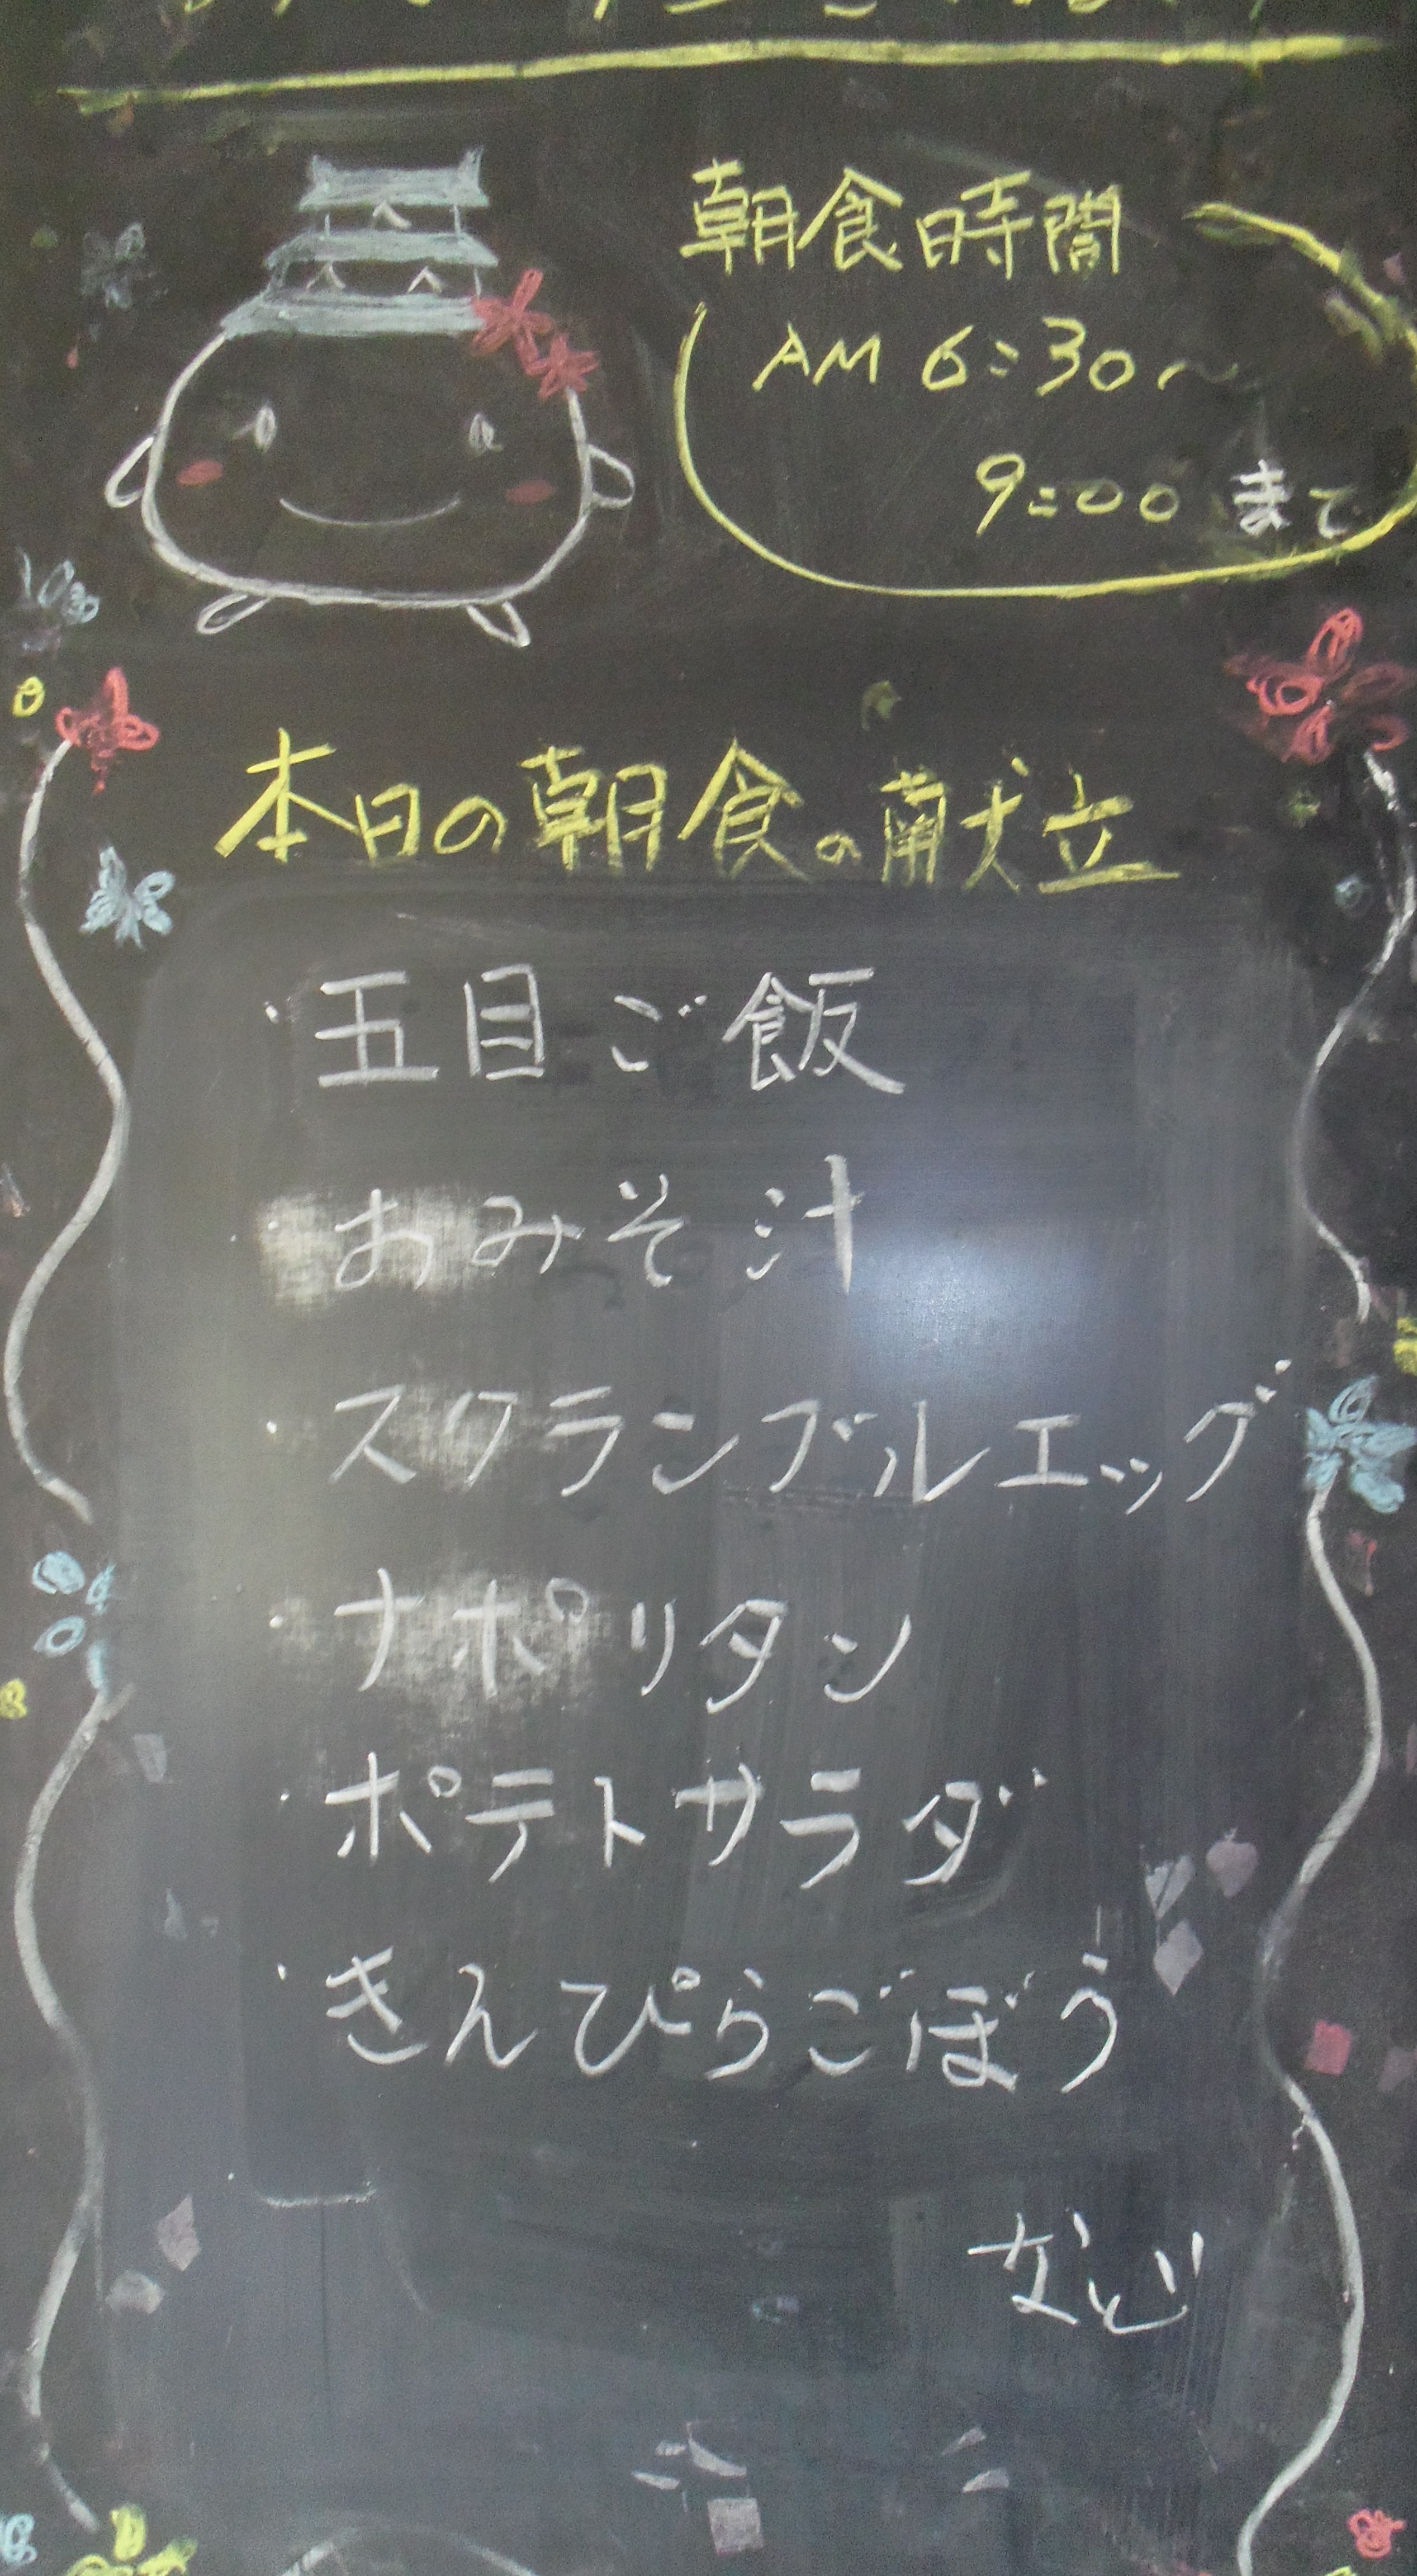 朝食時間
AM 6:30～
9:00 まで
本日の朝食の献立
・五目ご飯
・おみそ汁
・スクランブルエッグ
・ナポリタン
・ポテトサラダ
・きんぴらごぼう
など